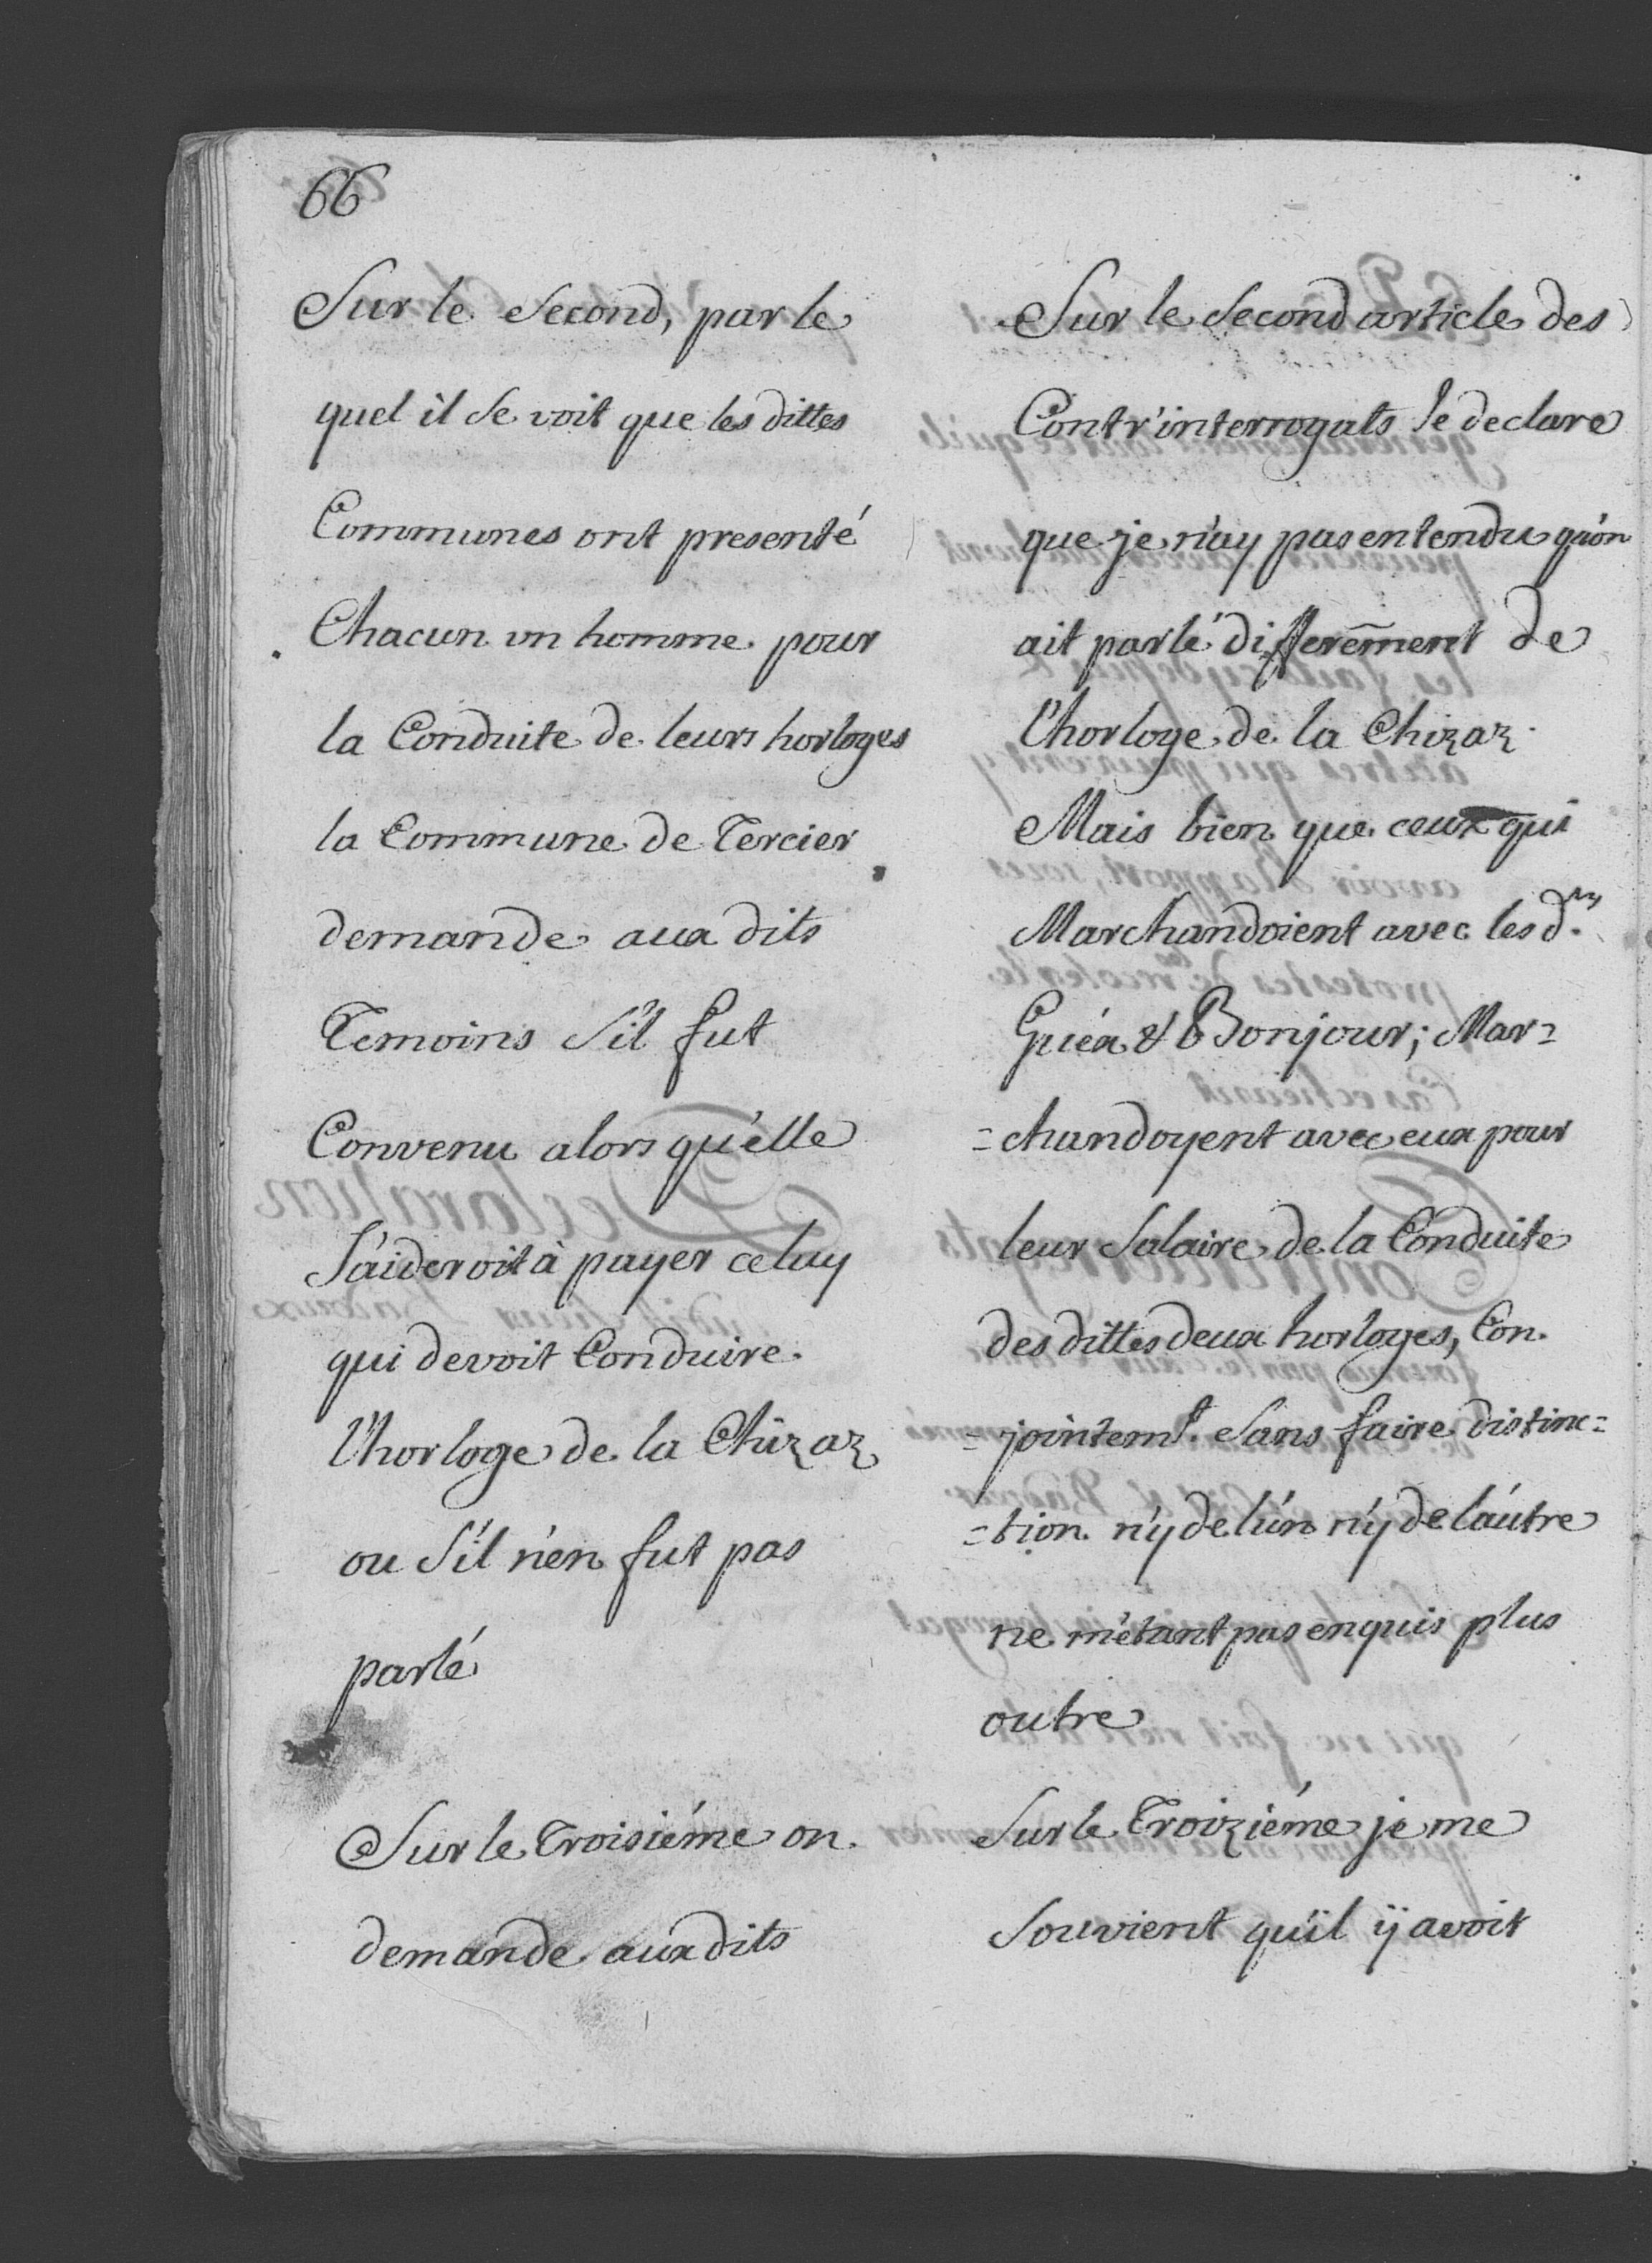 66
Sur le Second, par le
quel il se voit que les dittes
Communes ont presenté
Chacun un homme pour
la Conduite de leurs horloges
la Commune de Tercier
demande aux dits
Temoins s'il fut
Convenu alors qu'elle
s'aideroit à payer celuy
qui devoit Conduire
l'horloge de la Chizaz
ou s'il n'en fut pas
parlé
Sur le Troisiéme on
demande aux dits
Sur le Second article des
Contr'interrogats Je declare
que je n'ay pas entendu qu'on
ait parlé differem̄ent de
l'horloge de la Chizaz.
Mais bien que ceux qui
Marchandoient avec les d.ts
Guéx & Bonjour; Mar=
=chandoyent avec eux pour
leur Salaire de la Conduite
des dittes deux horloges, Con.
=jointem.t Sans faire distinc=
=tion n'y de l'un n'y de l'autre
ne m'étant pas enquis plus
outre
Sur le Troiziéme je me
Souvient qu'il ÿ avoit